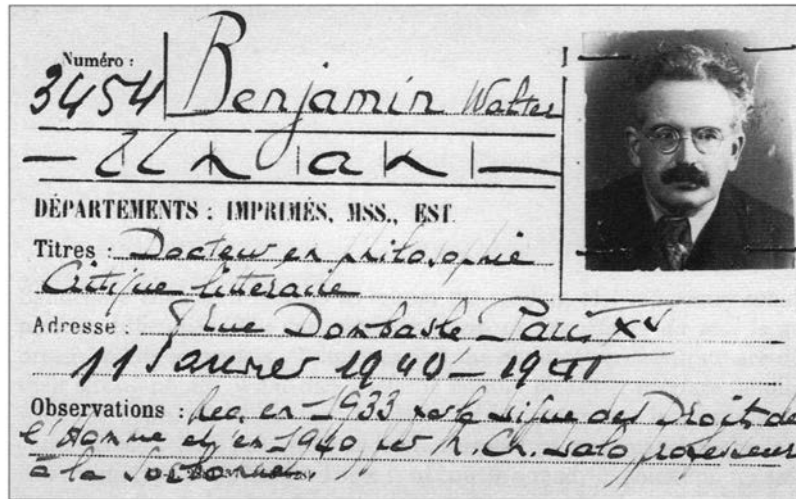 Numéro :
3454 Benjamin Walter
— Un an —
DÉPARTEMENTS : IMPRIMÉS, MSS., EST.
Titres : Docteur en philosophie
Critique litteraire
Adresse : rue Dombasle Paris XV
11 Janvier 1940 – 1941
Observations : Rec. en 1933 par la Ligue des Droits de
l'Homme et en 1940 par M. Ch. Lalo professeur
à la Sorbonne